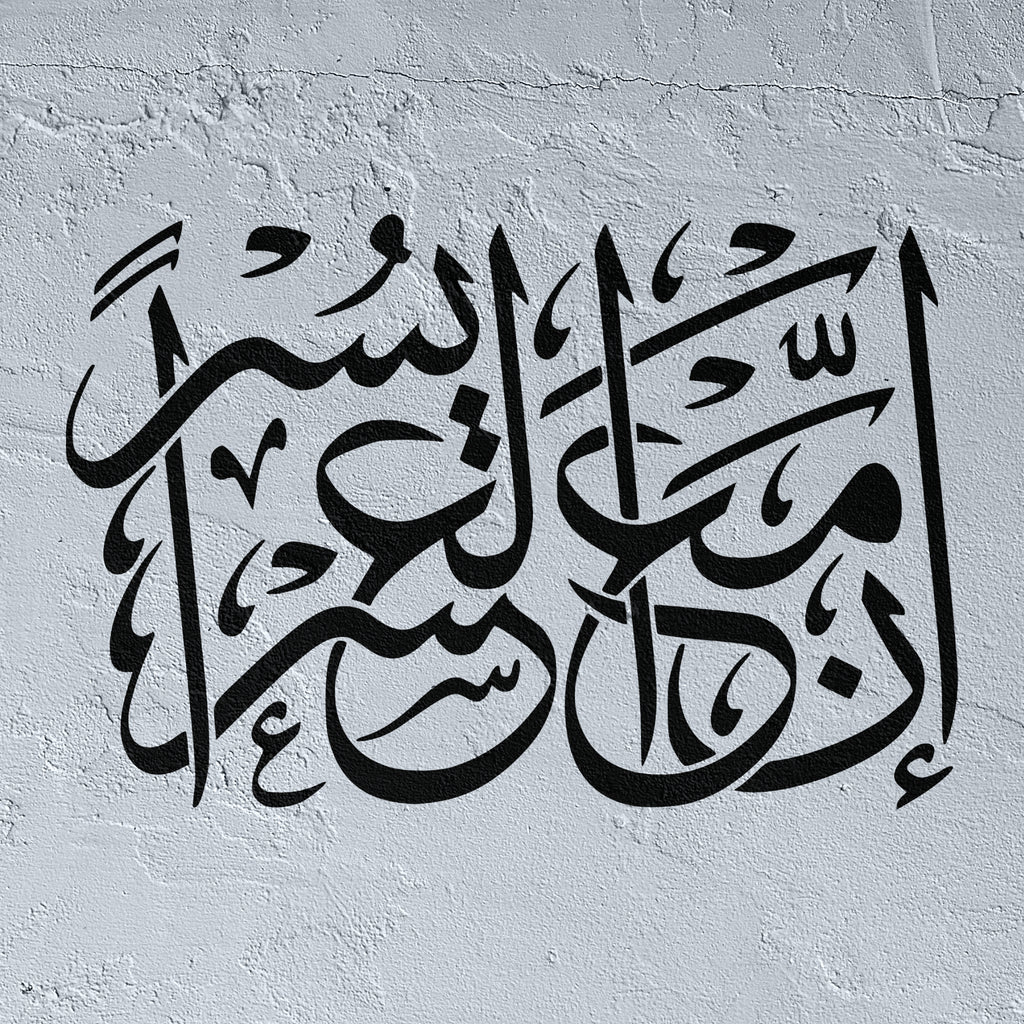 إنّ مع العسر يُسْراً